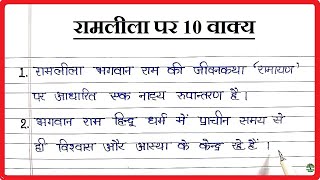 रामलीला पर 10 वाक्य
1. रामलीला भगवान राम की जीवनकथा 'रामायण'
पर आधारित एक नाट्य रुपान्तरण है।
2. भगवान राम हिन्दू धर्म में प्राचीन समय से
ही विश्वास और आस्था के केन्द्र रहे हैं।